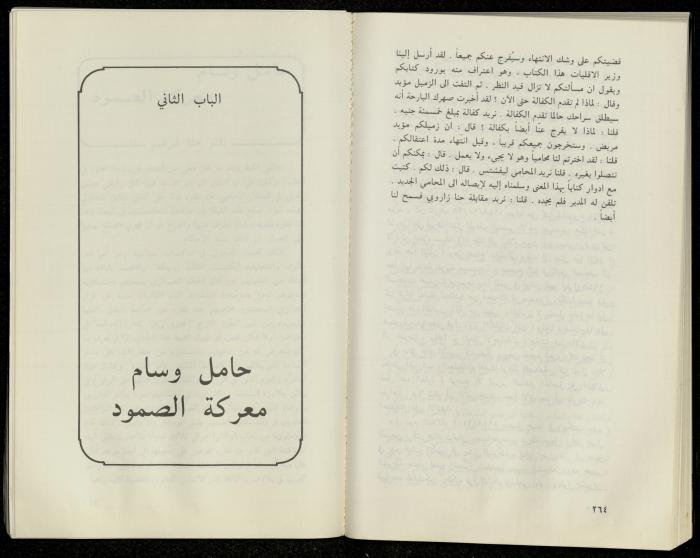 قضيتكم على وشك الانتهاء وسيُفرج عنكم جميعاً . لقد أرسل إلينا
وزير الاقليات هذا الكتاب ، وهو اعتراف منه بورود كتابكم
ويقول ان مسألتكم لا تزال قيد النظر . ثم التفت الى الزميل مؤيد
وقال : لماذا لم تقدم الكفالة حتى الآن ؟ لقد أخبرت صهرك البارحة أنه
سيطلق سراحك حالما تقدم الكفالة . نريد كفالة بمبلغ خمسمئة جنيه .
قلنا : لماذا لا يفرج عنّا أيضاً بكفالة ؟ قال : ان زميلكم مؤيد
مريض . وستخرجون جميعكم قريباً ، وقبل انتهاء مدة اعتقالكم .
قلنا : لقد اخترتم لنا محامياً وهو لا يجيء ولا يعمل . قال : يمكنكم أن
تتصلوا بغيره . قلنا نريد المحامي ليفتشتس . قال : ذلك لكم . كتبت
مع ادوار كتاباً بهذا المعنى وسلمناه إليه لإيصاله الى المحامي الجديد .
تلفن له المدير فلم يجده . قلنا : نريد مقابلة حنا زاروبي فسمح لنا
أيضاً .
٢٦٤
الباب الثاني
حامل وسام
معركة الصمود